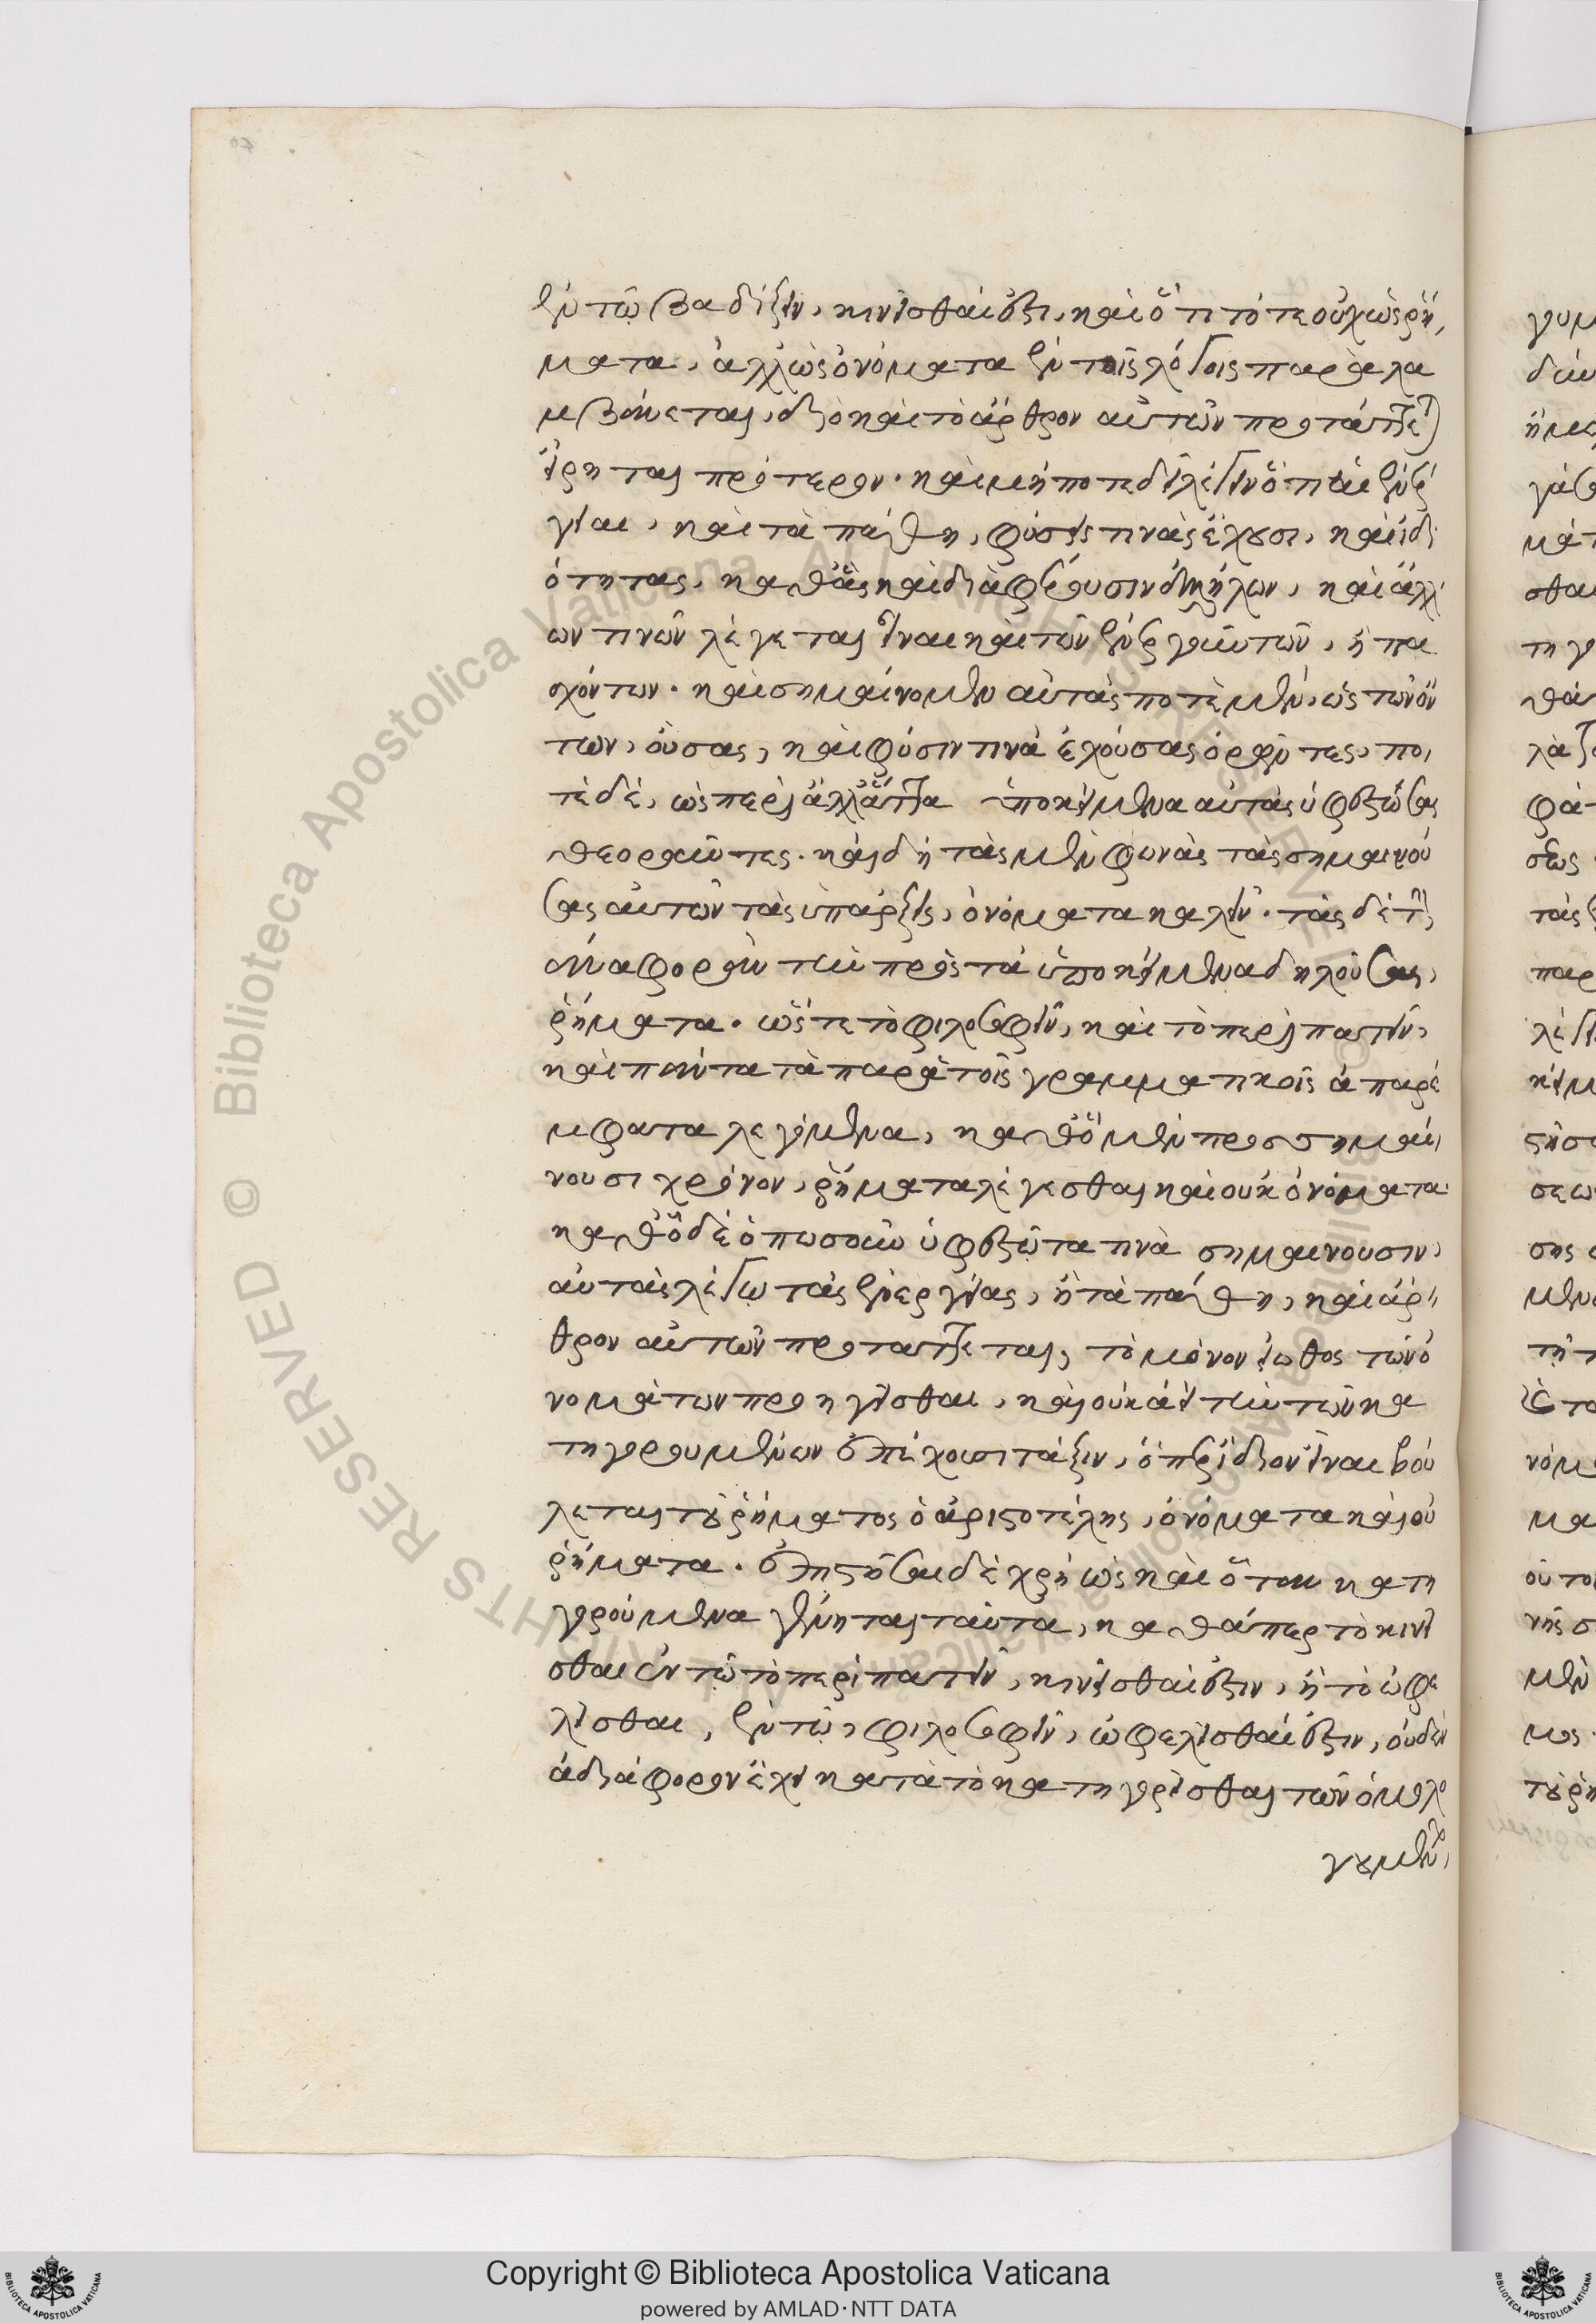 ἐν τῷ βαδίζειν, κινεῖσθαί ἐστι, καὶ ὅτι τότε οὐχ ὡς ῥή
ματα, ἀλλ' ὡς ὀνόματα ἐν τοῖς λόγοις παραλα
μβάνεται, διὸ καὶ τὸ ἄρθρον αὐτῶν προτάττεται
εἴρηται πρότερον. καὶ μήποτε δεῖ λέγειν ὅτι αἱ ἐνέρ
γειαι, καὶ τὰ πάθη, φύσεις τινὰς ἔχουσι, καὶ ἰδι
ότητας, καθ' ἃς καὶ διαφέρουσιν ἀλλήλων, καὶ ἄλλ
ων τινῶν λέγεται εἶναι καὶ τῶν ἐνεργούντων, ἢ πα
σχόντων. καὶ σημαίνομεν αὐτὰς ποτὲ μὲν, ὡς τῶν ὄν
των, οὔσας, καὶ φύσιν τινὰ ἐχούσας ὁρῶντες, πο
τὲ δὲ, ὡς περὶ ἄλλα ἄττα ὑποκείμενα αὐτὰς ὑφεστώσας
θεοροῦντες. καὶ δὴ τὰς μὲν φωνὰς τὰς σημαινού
σας αὐτῶν τὰς ὑπάρξεις, ὀνόματα καλεῖν. τὰς δὲ τὴν
ἀναφορὰν τὴν πρὸς τὰ ὑποκείμενα δηλούσας,
ῥήματα. ὥστε τὸ φιλοσοφεῖν, καὶ τὸ περιπατεῖν,
καὶ πάντα τὰ παρὰ τοῖς γραμματικοῖς ἀπαρέ
μφατα λεγόμενα, καθ' ὃ μὲν προσσημαί
νουσι χρόνον, ῥήματα λέγεσθαι καὶ οὐκ ὀνόματα
καθ' ὃ δὲ ὁπωσοῦν ὑφεστῶτα τινὰ σημαίνουσιν,
αὐτὰς λέγω τὰς ἐνεργείας, ἢ τὰ πάθη, καὶ ἄρ
θρον αὐτῶν προτάττεται, τὸ μόνον εἰωθὸς τῶν ὀ
νομάτων προηγεῖσθαι, καὶ οὐκ ἀεὶ τὴν τῶν κα
τηγορουμένων ἐπέχουσι τάξιν, ὅπερ ἴδιον εἶναι βού
λεται τοῦ ῥήματος ὁ ἀριστοτέλης, ὀνόματα καὶ οὐ
ῥήματα. ἐπιστῆσαι δὲ χρὴ ὡς καὶ ὅταν κατη
γορούμενα γένηται ταῦτα, καθάπερ τὸ κινεῖ
σθαι ἐν τῷ τὸ περιπατεῖν, κινεῖσθαί ἐστιν, ἢ τὸ ὠφε
λεῖσθαι, ἐν τῷ, φιλοσοφεῖν, ὠφελεῖσθαί ἐστιν, οὐδὲν
ἀδιάφορον ἔχει κατὰ τὸ κατηγορεῖσθαι τῶν ὁμολο
γουμένων